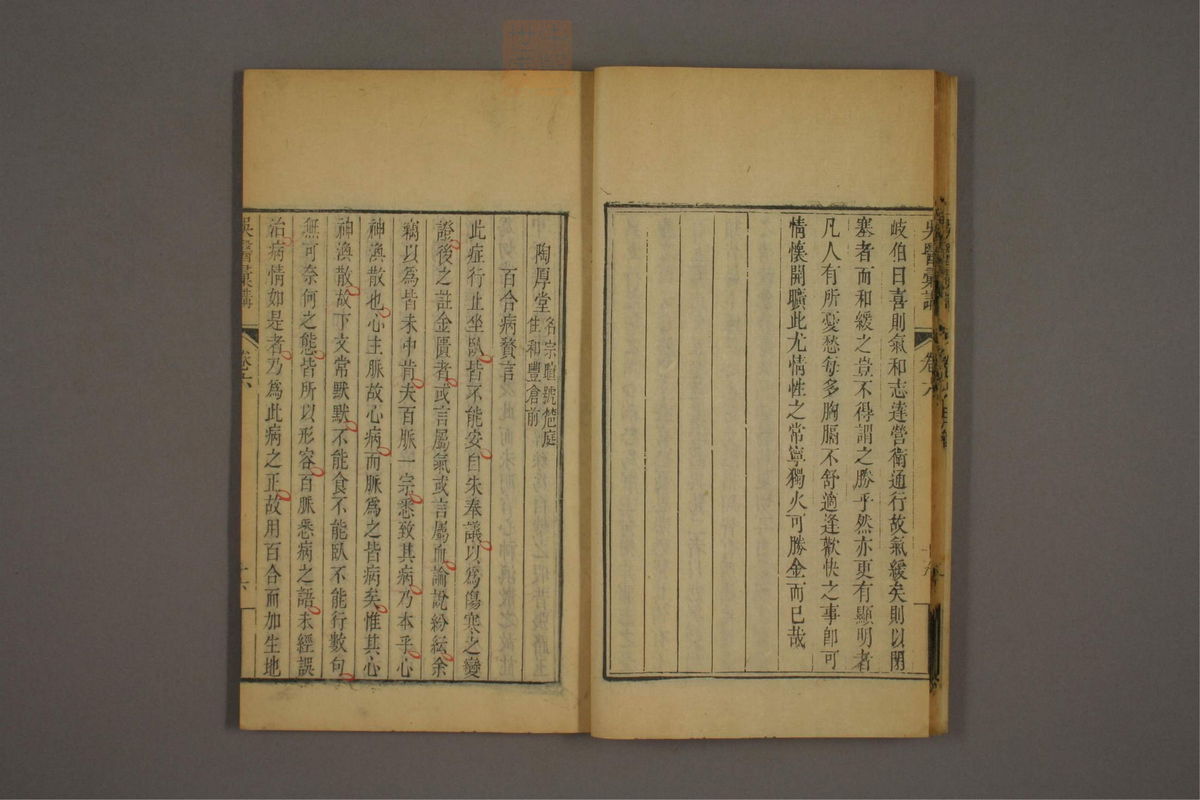 岐伯曰喜則氣和志達營衛通行故氣緩矣則以閉
塞者而和緩之豈不得謂之勝乎然亦更有顯明者
凡人有所憂愁每多胸膈不舒適逢歡快之事卽可
情懷開曠此尤情性之常寧獨火可勝金而已哉
吳醫彙講
卷六
陶厚堂
名宗暄號厚庭
住和豐倉前
百合病贅言
此症行止坐臥皆不能安自朱奉議以爲傷寒之變
證後之註金匱者或言屬氣或言屬血論說紛紜余
竊以爲皆未中肯夫百脈一宗悉致其病乃本乎心
神渙散也心主脈故心病而脈爲之皆病矣惟其心
神渙散故下文常默默不能食不能臥不能行數句
無可奈何之態皆所以形容百脈悉病之語未經誤
治病情如是者乃爲此病之正故用百合而加生地
吳醫彙講
卷六